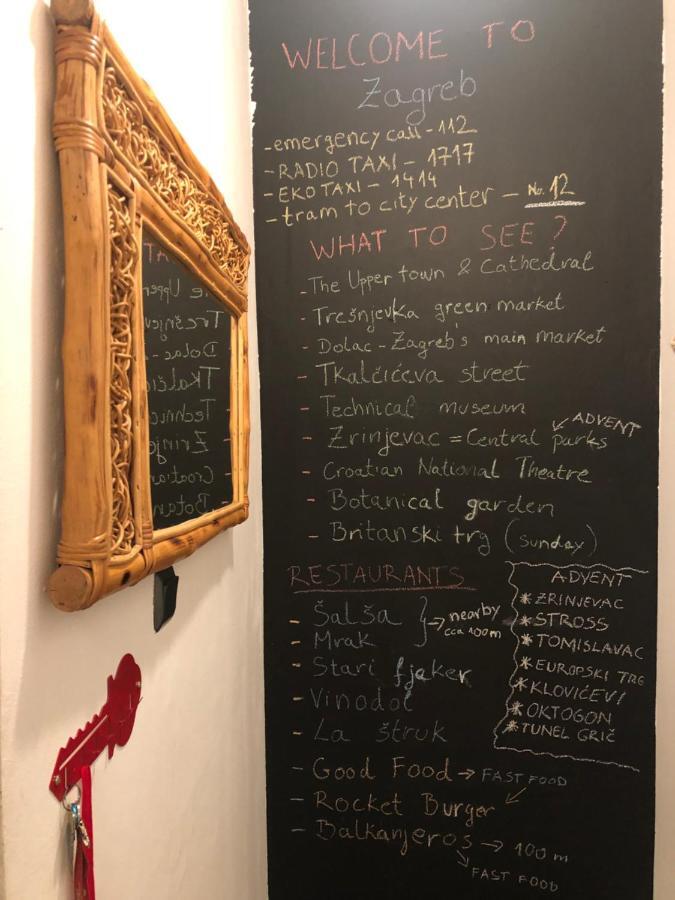 WELCOME TO
Zagreb
-emergency call - 112
-RADIO TAXI - 1717
-EKO TAXI - 1414
-tram to city center - No. 12
WHAT TO SEE?
- The Upper town & Cathedral
- Trešnjevka green market
- Dolac - Zagreb's main market
- Tkalčićeva street
- Technical museum
- Zrinjevac = Central parks
ADVENT
- Croatian National Theatre
- Botanical garden
- Britanski trg (sunday)
RESTAURANTS
- Šalša
- Mrak
→ nearby
cca 100m
- Stari fjaker
- Vinodol
- La štruk
- Good Food → FAST FOOD
- Rocket Burger
- Balkanjeros → 100 m
FAST FOOD
ADVENT
* ZRINJEVAC
* STROSS
* TOMISLAVAC
* EUROPSKI TRG
* KLOVIĆEVI
* OKTOGON
* TUNEL GRIČ